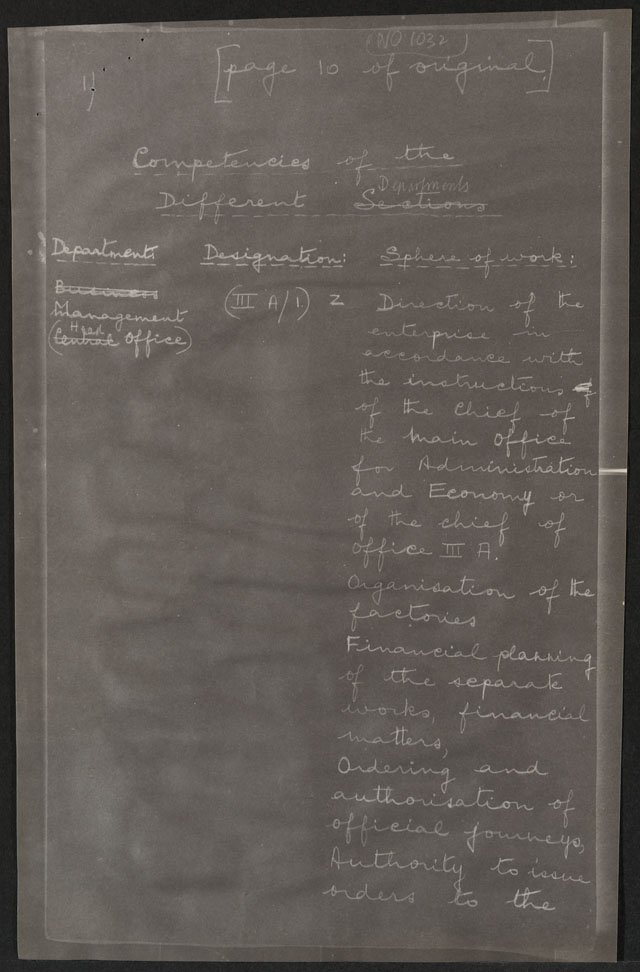 (NO 1032)
1)
[page 10 of original]
Competencies of the
Departments
Different Sections
Department Designation: Sphere of work:
Business
Management
Head
(Central Office)
(III A/1) Z Direction of the
enterprise in
accordance with
the instructions of
of the Chief of
the Main Office
for Administration
and Economy or
of the chief of
office III A.
Organisation of the
factories
Financial planning
of the separate
works, financial
matters,
Ordering and
authorisation of
official journeys,
Authority to issue
orders to the